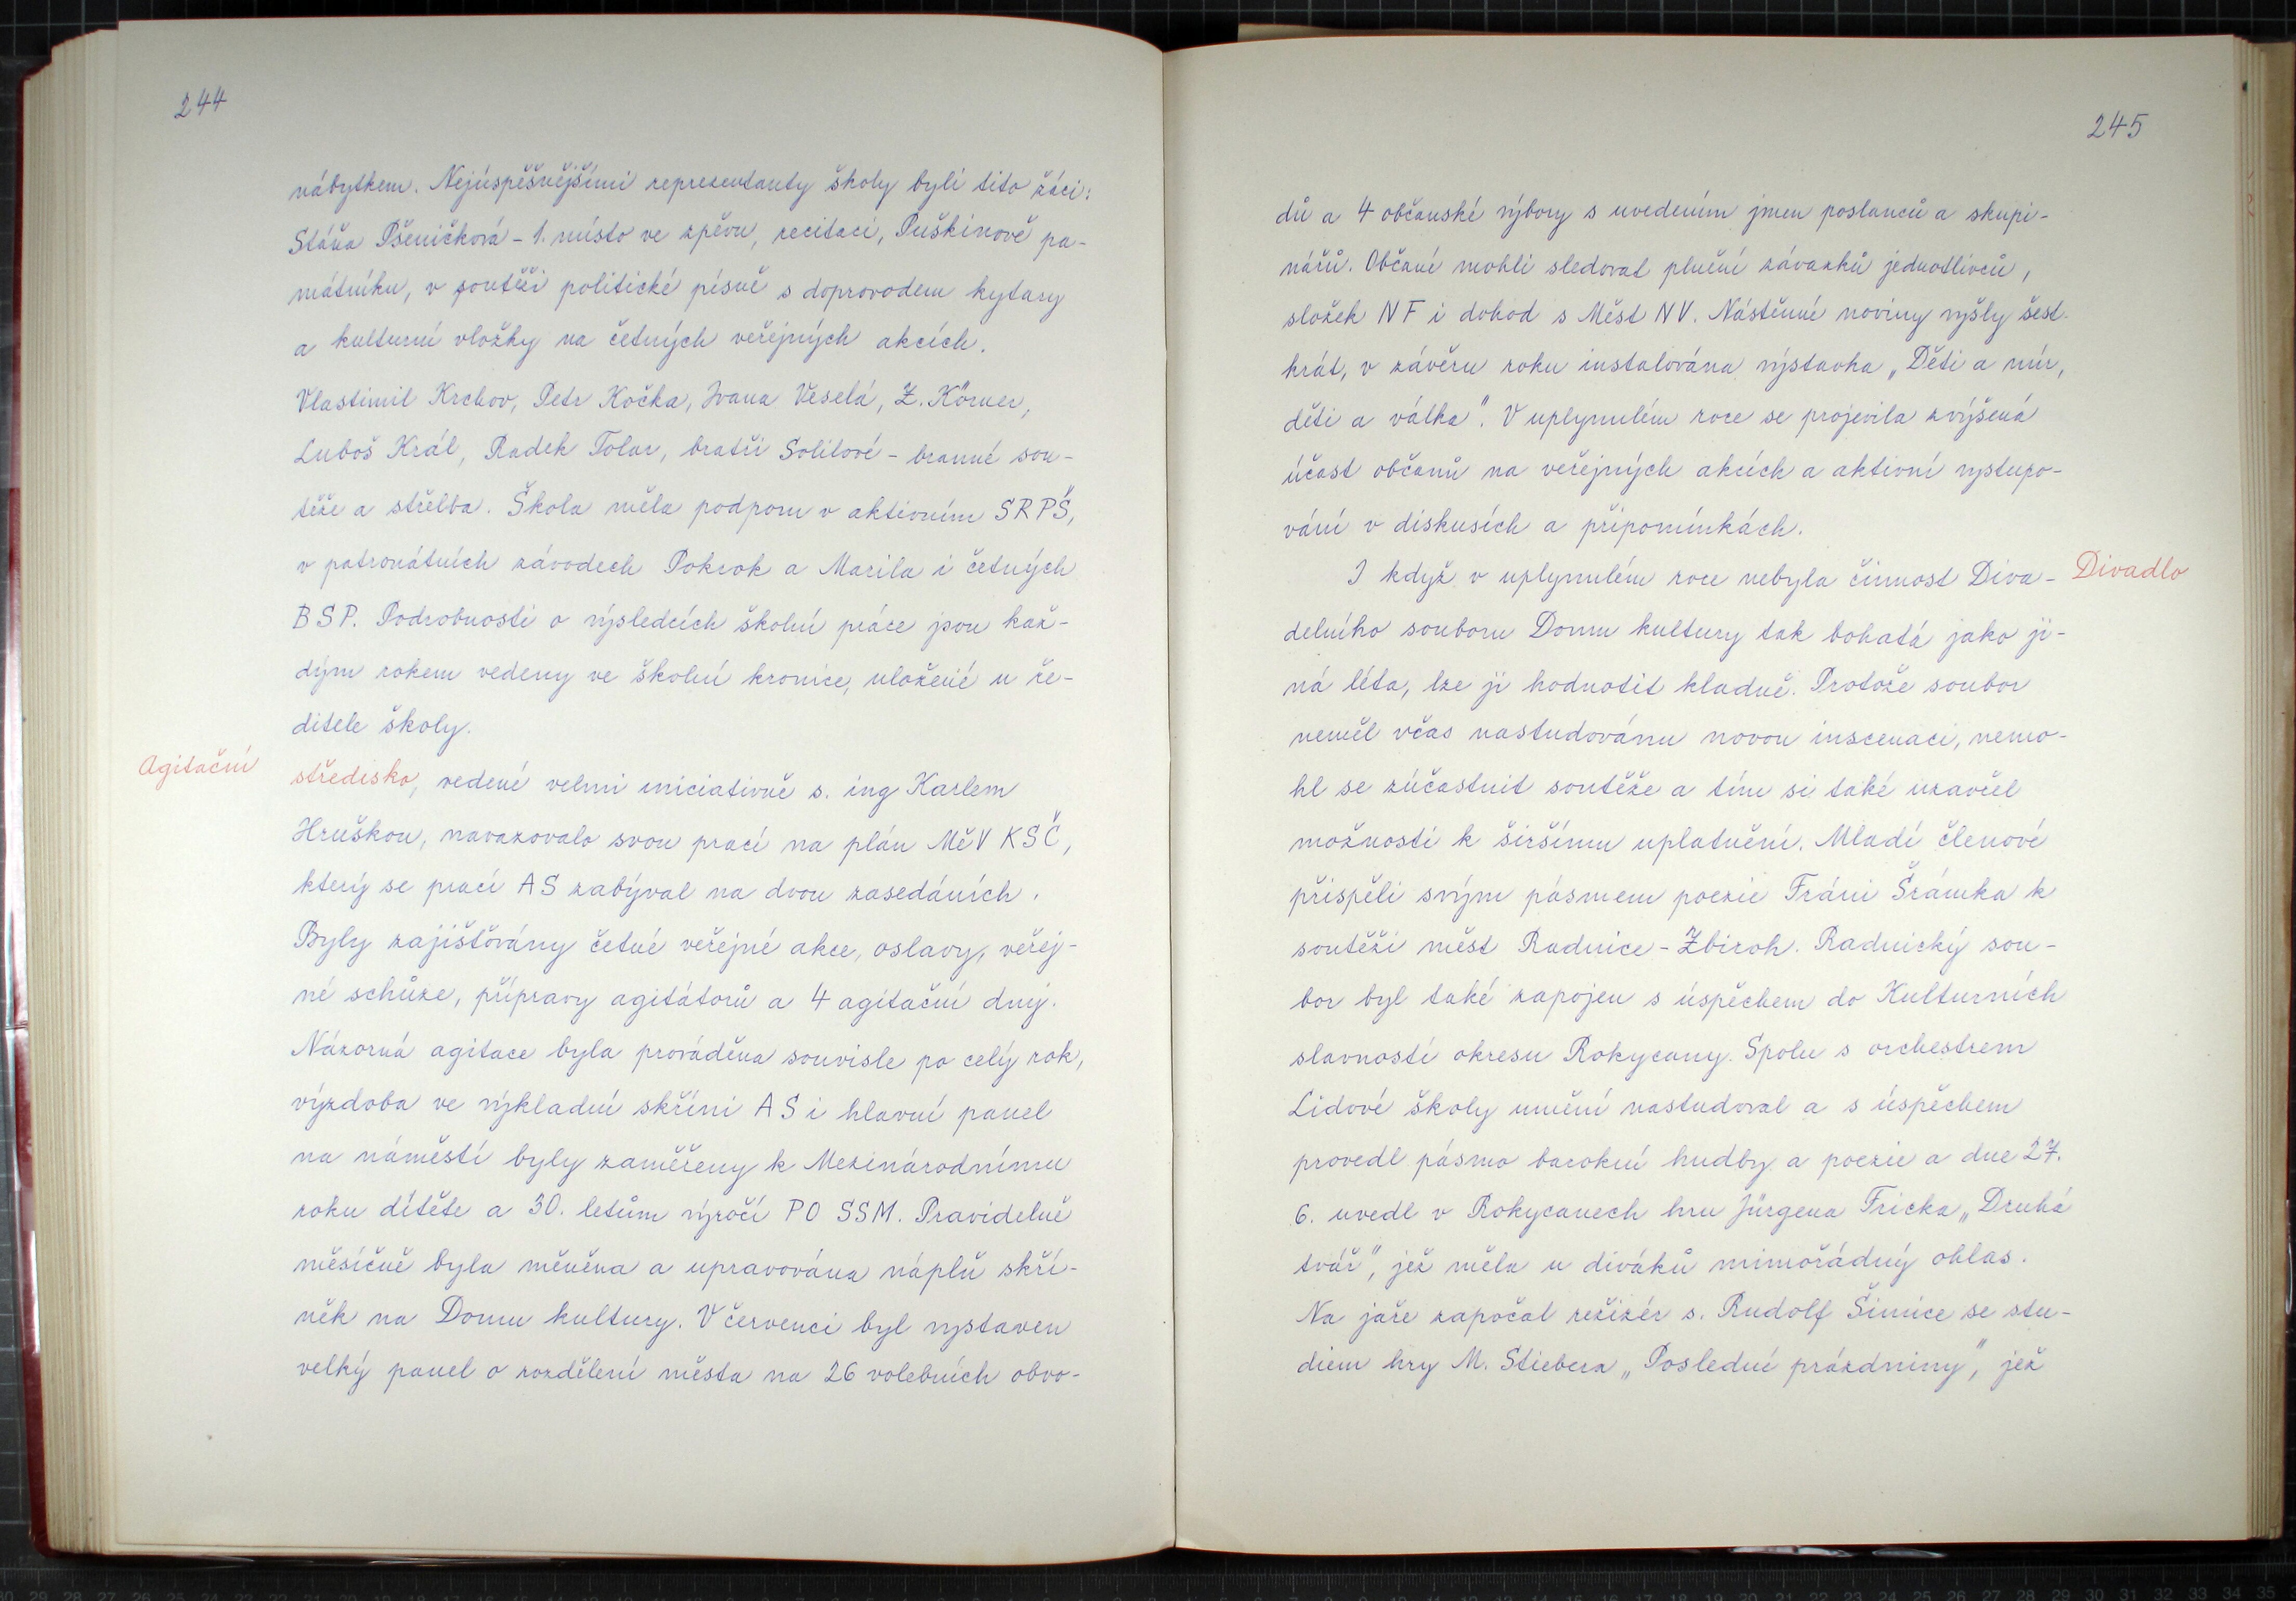 244
nábytkem. Nejúspěšnějšími reprezentanty školy byli tito žáci:
Stáňa Pšeničková - 1. místo ve zpěvu, recitaci, Puškinově pa-
mátníku, v soutěži politické písně s doprovodem kytary
a kulturní vložky na četných veřejných akcích.
Vlastimil Krchov, Petr Kočka, Ivana Veselá, Z. Körner,
Luboš Král, Radek Tolar, bratři Solilové - branné sou-
těže a střelba. Škola měla podporu v aktivním SRPŠ,
v patronátních závodech Pokrok a Marila i četných
BSP. Podrobnosti o výsledcích školní práce jsou kaž-
dým rokem vedeny ve školní kronice, uložené u ře-
ditele školy.
Agitační středisko, vedené velmi iniciativně s. ing Karlem
Hruškou, navazovalo svou prací na plán MěV KSČ,
který se prací AS zabýval na dvou zasedáních.
Byly zajišťovány četné veřejné akce, oslavy, veřej-
né schůze, přípravy agitátorů a 4 agitační dny.
Názorná agitace byla prováděna souvisle po celý rok,
výzdoba ve výkladní skříni AS i hlavní panel
na náměstí byly zaměřeny k Mezinárodnímu
roku dítěte a 30. letům výročí PO SSM. Pravidelně
měsíčně byla měněna a upravována náplň skří-
něk na Domu kultury. V červenci byl vystaven
velký panel o rozdělení města na 26 volebních obvo-
245
dů a 4 občanské výbory s uvedením jmen poslanců a skupi-
nářů. Občané mohli sledovat plnění závazků jednotlivců,
složek NF i dohod s Měst NV. Nástěnné noviny vyšly šest-
krát, v závěru roku instalována výstavka "Děti a mír,
děti a válka". V uplynulém roce se projevila zvýšená
účast občanů na veřejných akcích a aktivní vystupo-
vání v diskusích a připomínkách.
I když v uplynulém roce nebyla činnost Diva- Divadlo
delního souboru Domu kultury tak bohatá jako ji-
ná léta, lze ji hodnotit kladně. Protože soubor
neměl včas nastudovánu novou inscenaci, nemo-
hl se zúčastnit soutěže a tím si také uzavřel
možnosti k širšímu uplatnění. Mladí členové
přispěli svým pásmem poezie Fráni Šrámka k
soutěži měst Radnice - Zbiroh. Radnický sou-
bor byl také zapojen s úspěchem do Kulturních
slavností okresu Rokycany. Spolu s orchestrem
Lidové školy umění nastudoval a s úspěchem
provedl pásmo barokní hudby a poezie a dne 27.
6. uvedl v Rokycanech hru Jürgena Fricka "Druhá
tvář", jež měla u diváků mimořádný ohlas.
Na jaře započal režizér s. Rudolf Šimice se stu-
diem hry M. Stiebera "Poslední prázdniny", jež